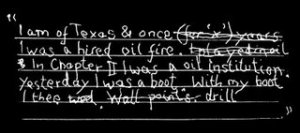 “I am of Texas & once (for 'x') years
I was a hired oil fire. I played in oil
& In Chapter II I was a oil Institution.
Yesterday I was a boot. With my boot
I thee Wall point's drill
”